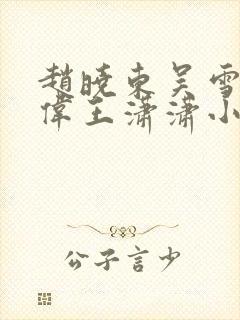 趙曉東吴雪
偉王瀟瀟小
公子言少